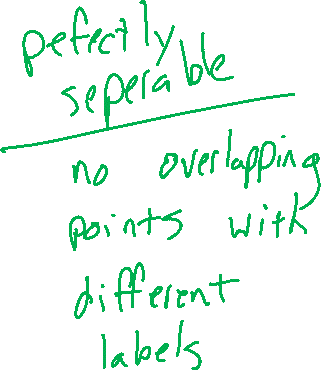 pefectly
seperable
no overlapping
points with
different
labels